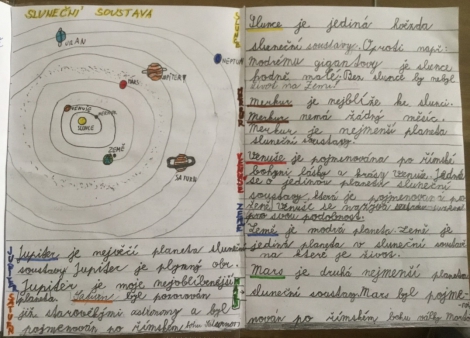 SLUNEČNÍ SOUSTAVA
URAN
NEPTUN
JUPITER
MARS
VENUŠE
MERKUR
SLUNCE
ZEMĚ
SATURN
Jupiter je největší planeta sluneční
soustavy Jupiter je plynný obr.
Jupiter je moje nejoblíbenější
planeta. Saturn byl pozorován
již starověkými astronomy a byl
pojmenován po římském bohu
JUPITER
SATURN
SLUNCE
MERKUR
VENUŠE
ZEMĚ
MARS
Slunce je jediná hvězda
sluneční soustavy. Oproti např:
modrému gigantovy je slunce
hodně malé. Bez slunce by nebyl
život na Zemi!
Merkur je nejblíže ke slunci.
Merkur nemá žádný měsíc.
Merkur je nejmenší planeta
sluneční soustavy.
Venuše je pojmenována po římské
bohyni lásky a krásy Venuše. Jedná
se o jedinou planetu sluneční
soustavy, která je pojmenovaná po
ženě. Venuše se nazývá
pro svou podobnost.
Země je modrá planeta. Země je
jediná planeta v sluneční soustavě
na které je život.
Mars je druhá nejmenší planeta
sluneční soustavy. Mars byl pojme-
nován po římském bohu války